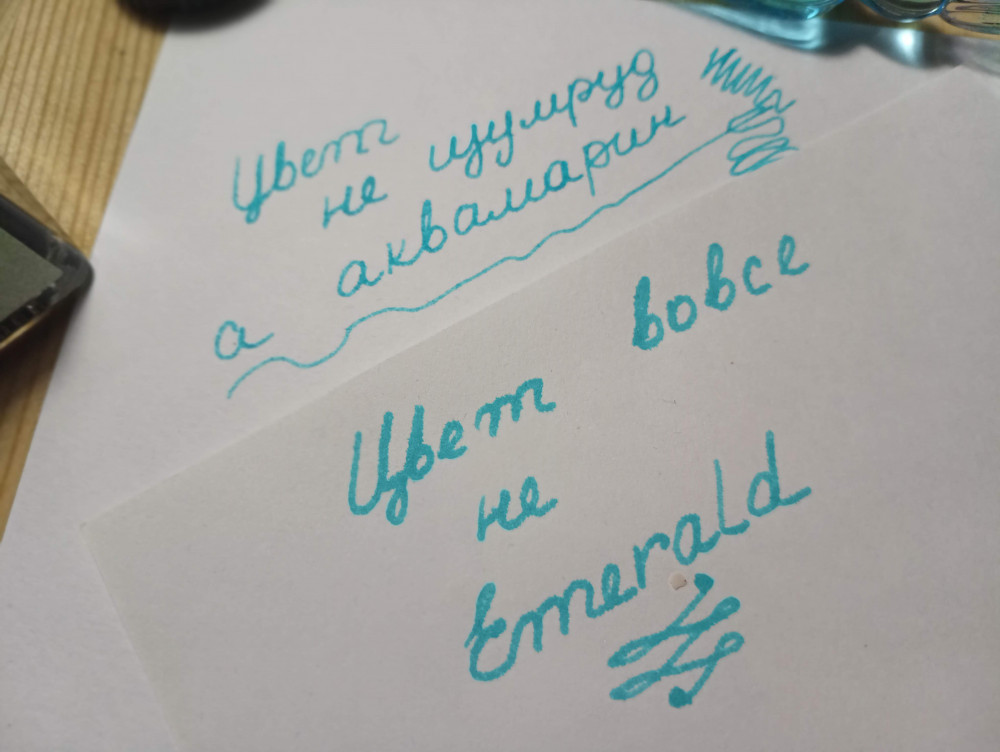 Цвет
не изумруд
а аквамарин
Цвет вовсе
не
Emerald